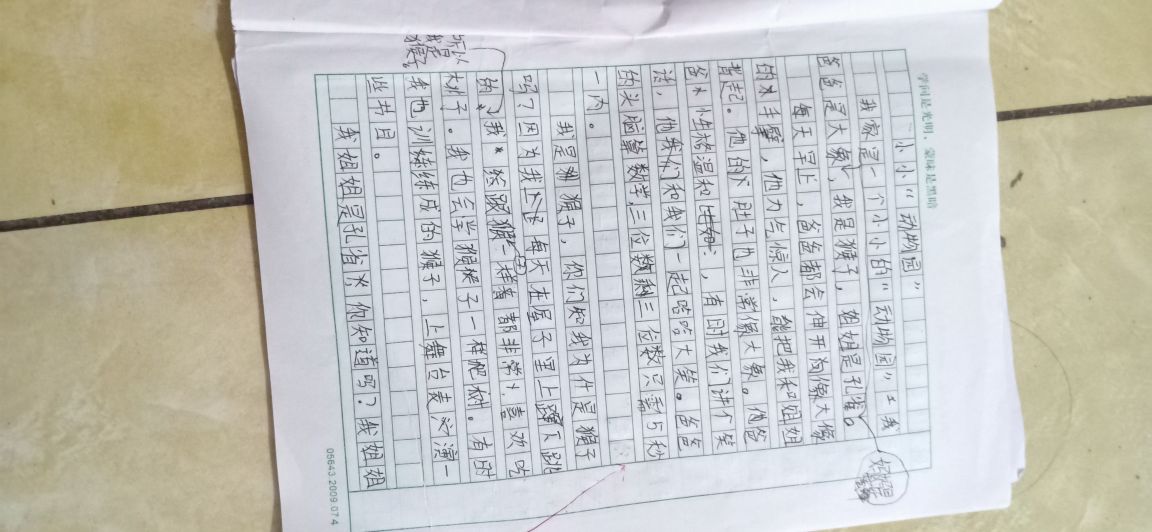 学问是光明,蒙昧是黑暗
小小“动物园”
我家是一个小小的“动物园”。我
爸爸是大象,我是猴子,姐姐是孔雀。
每天早上,爸爸都会伸开狗像大像
的手臂,他力气惊人,能把我和姐姐
背起。他的下肚子也非常像大象。他爸
爸性格温和,有时我们讲个笑
话,他我们和我们一起哈哈大笑。爸爸
的头脑算数学,三位数剩三位数只需5秒
一内。
我是猴子,你们知我为什是猴子
吗?因为我每天在屋子里上蹿下跳
的,我然跟猴子一样都非常喜欢吃
桃子。我也会学猴子一样爬树。有时
我也训练成的猴子,上舞台表演一
些书目。
我姐姐是孔雀,你知道吗?我姐姐
所以我是猴子。
05643.2009.07.4